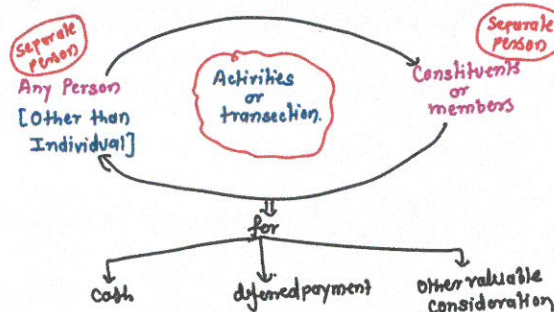 Separate
person
Any Person
[Other than
Individual]
Activities
or
transection.
Separate
person
Constituents
or
members
for
Cash
diferred payment
Other valuable
consideration